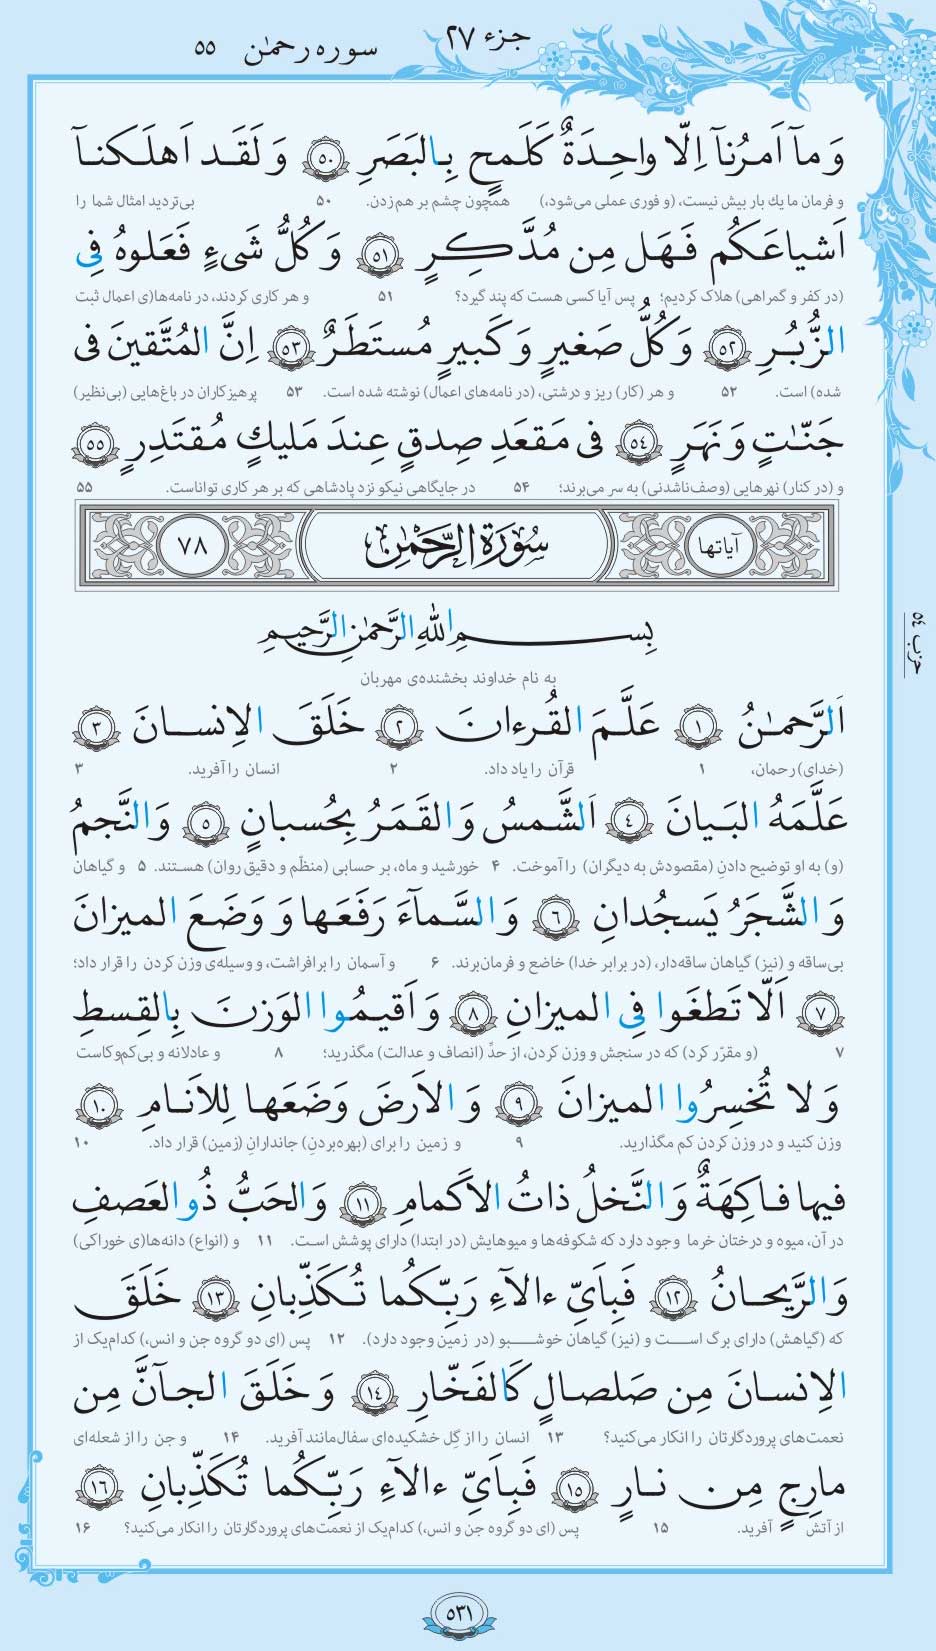 جزء ۲۷
سوره رحمٰن ۵۵
وَ مآ اَمرُنآ اِلّا واحِـدَةٌ كَلَـمحٍ بِـالبَصَرِ ﴿٥٠﴾ وَ لَقَـد اَهلَـكنـآ
و فرمان ما یك بار بیش نیست، (و فوری عملی می‌شود،) همچون چشم بر هم‌زدن. ۵۰ بی‌تردید امثال شما را
اَشياعَـكُم فَـهَـل مِن مُدَّكِـرٍ ﴿٥١﴾ وَ كُلُّ شَىءٍ فَعَلوهُ فِى
(در کفر و گمراهی) هلاک کردیم؛ پس آیا کسی هست که پند گیرد؟ ۵۱ و هر کاری کردند، در نامه‌ها(ی اعمال ثبت
الزُّبُـرِ ﴿٥٢﴾ وَ كُلُّ صَغيرٍ وَ كَبيرٍ مُستَطَرٌ ﴿٥٣﴾ اِنَّ المُتَّقينَ فى
شده) است. ۵۲ و هر (کار) ریز و درشتی، (در نامه‌های اعمال) نوشته شده است. ۵۳ پرهیزکاران در باغ‌هایی (بی‌نظیر)
جَنّـٰتٍ وَ نَهَرٍ ﴿٥٤﴾ فى مَقعَدِ صِدقٍ عِندَ مَليكٍ مُقتَدِرٍ ﴿٥٥﴾
و (در کنار) نهرهایی (وصف‌ناشدنی) به سر می‌برند؛ ۵۴ در جایگاهی نیکو نزد پادشاهی که بر هر کاری تواناست. ۵۵
آیاتها سُورَةُ الرَّحمٰن ۷۸
بِســمِ اللهِ الرَّحمٰنِ الرَّحيمِ
به نام خداوند بخشنده‌ی مهربان
اَلرَّحمـٰنُ ﴿١﴾ عَلَّـمَ القُـرءانَ ﴿٢﴾ خَلَقَ الاِنسـانَ ﴿٣﴾
(خدای) رحمان، ۱ قرآن را یاد داد. ۲ انسان را آفرید. ۳
عَلَّمَهُ البَـيانَ ﴿٤﴾ اَلشَّـمسُ وَ القَمَـرُ بِحُسبانٍ ﴿٥﴾ وَ النَّجمُ
(و) به او توضیح دادنِ (مقصودش به دیگران) را آموخت. ۴ خورشید و ماه، بر حسابی (منظّم و دقیق روان) هستند. ۵ و گیاهان
وَ الشَّجَرُ يَسجُدانِ ﴿٦﴾ وَ السَّمآءَ رَفَعَـها وَ وَضَعَ الميزانَ
بی‌ساقه و (نیز) گیاهان ساقه‌دار، (در برابر خدا) خاضع و فرمان‌برند. ۶ و آسمان را برافراشت، و وسیله‌ی وزن کردن را قرار داد؛
﴿٧﴾ اَلّا تَطغَوا فِى الميزانِ ﴿٨﴾ وَ اَقيـمُـوا الوَزنَ بِالقِسطِ
۷ (و مقرّر کرد) که در سنجش و وزن کردن، از حدِّ (انصاف و عدالت) مگذرید؛ ۸ و عادلانه و بی‌کم‌وکاست
وَ لا تُخسِرُوا الميزانَ ﴿٩﴾ وَ الاَرضَ وَضَعَـها لِلاَنـامِ ﴿١٠﴾
وزن کنید و در وزن کردن کم مگذارید. ۹ و زمین را برای (بهره‌بردنِ) جاندارانِ (زمین) قرار داد. ۱۰
فيها فـاكِهَةٌ وَ النَّخلُ ذاتُ الاَكمامِ ﴿١١﴾ وَ الحَبُّ ذُو العَصفِ
در آن، میوه و درختان خرما وجود دارد که شکوفه‌ها و میوهایش (در ابتدا) دارای پوشش است. ۱۱ و (انواع) دانه‌ها(ی خوراکی)
وَ الرَّيحـانُ ﴿١٢﴾ فَبِاَىِّ ءالآءِ رَبِّـكُما تُـكَذِّبانِ ﴿١٣﴾ خَلَقَ
که (گیاهش) دارای برگ است و (نیز) گیاهان خوشبو (در زمین وجود دارد). ۱۲ پس (ای دو گروه جن و انس،) کدام‌یک از
الاِنسـانَ مِن صَلصـالٍ كَالفَخّـارِ ﴿١٤﴾ وَ خَلَقَ الجـآنَّ مِن
نعمت‌های پروردگارتان را انکار می‌کنید؟ ۱۳ انسان را از گِل خشکیده‌ای سفال‌مانند آفرید. ۱۴ و جن را از شعله‌ای
مارِجٍ مِن نـارٍ ﴿١٥﴾ فَبِاَىِّ ءالآءِ رَبِّـكُما تُكَذِّبانِ ﴿١٦﴾
از آتش آفرید. ۱۵ پس (ای دو گروه جن و انس،) کدام‌یک از نعمت‌های پروردگارتان را انکار می‌کنید؟ ۱۶
حزب ٥٤
۵۳۱